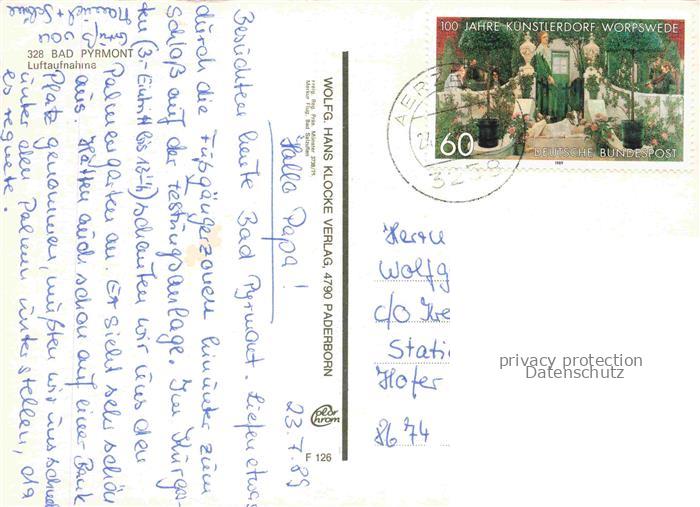 328 BAD PYRMONT
Luftaufnahme
Hallo Papa! 23.7.89
Besichten heute Bad Pyrmont. Liefen etwas
durch die Fußgängerzonen hinunter zum
Schloß auf der Festungsanlage. Im Kurgar-
ten (3.- Eintritt bis 18 h) schauten wir uns den
Palmengarten an. Er sieht sehr schön
aus. Hatten auch schon auf einer Bank
Platz genommen, mußten wir uns schnell
unter den Palmen unterstellen, da
es regnete.
WOLFG. HANS KLOCKE VERLAG, 4790 PADERBORN
Freig. Reg. Präs. Münster
F 126
100 JAHRE KÜNSTLERDORF WORPSWEDE
60
DEUTSCHE BUNDESPOST
1989
AERZ
3258
Herrn
Wolfg
c/o Kre
Stati
Hofer
8674
privacy protection
Datenschutz